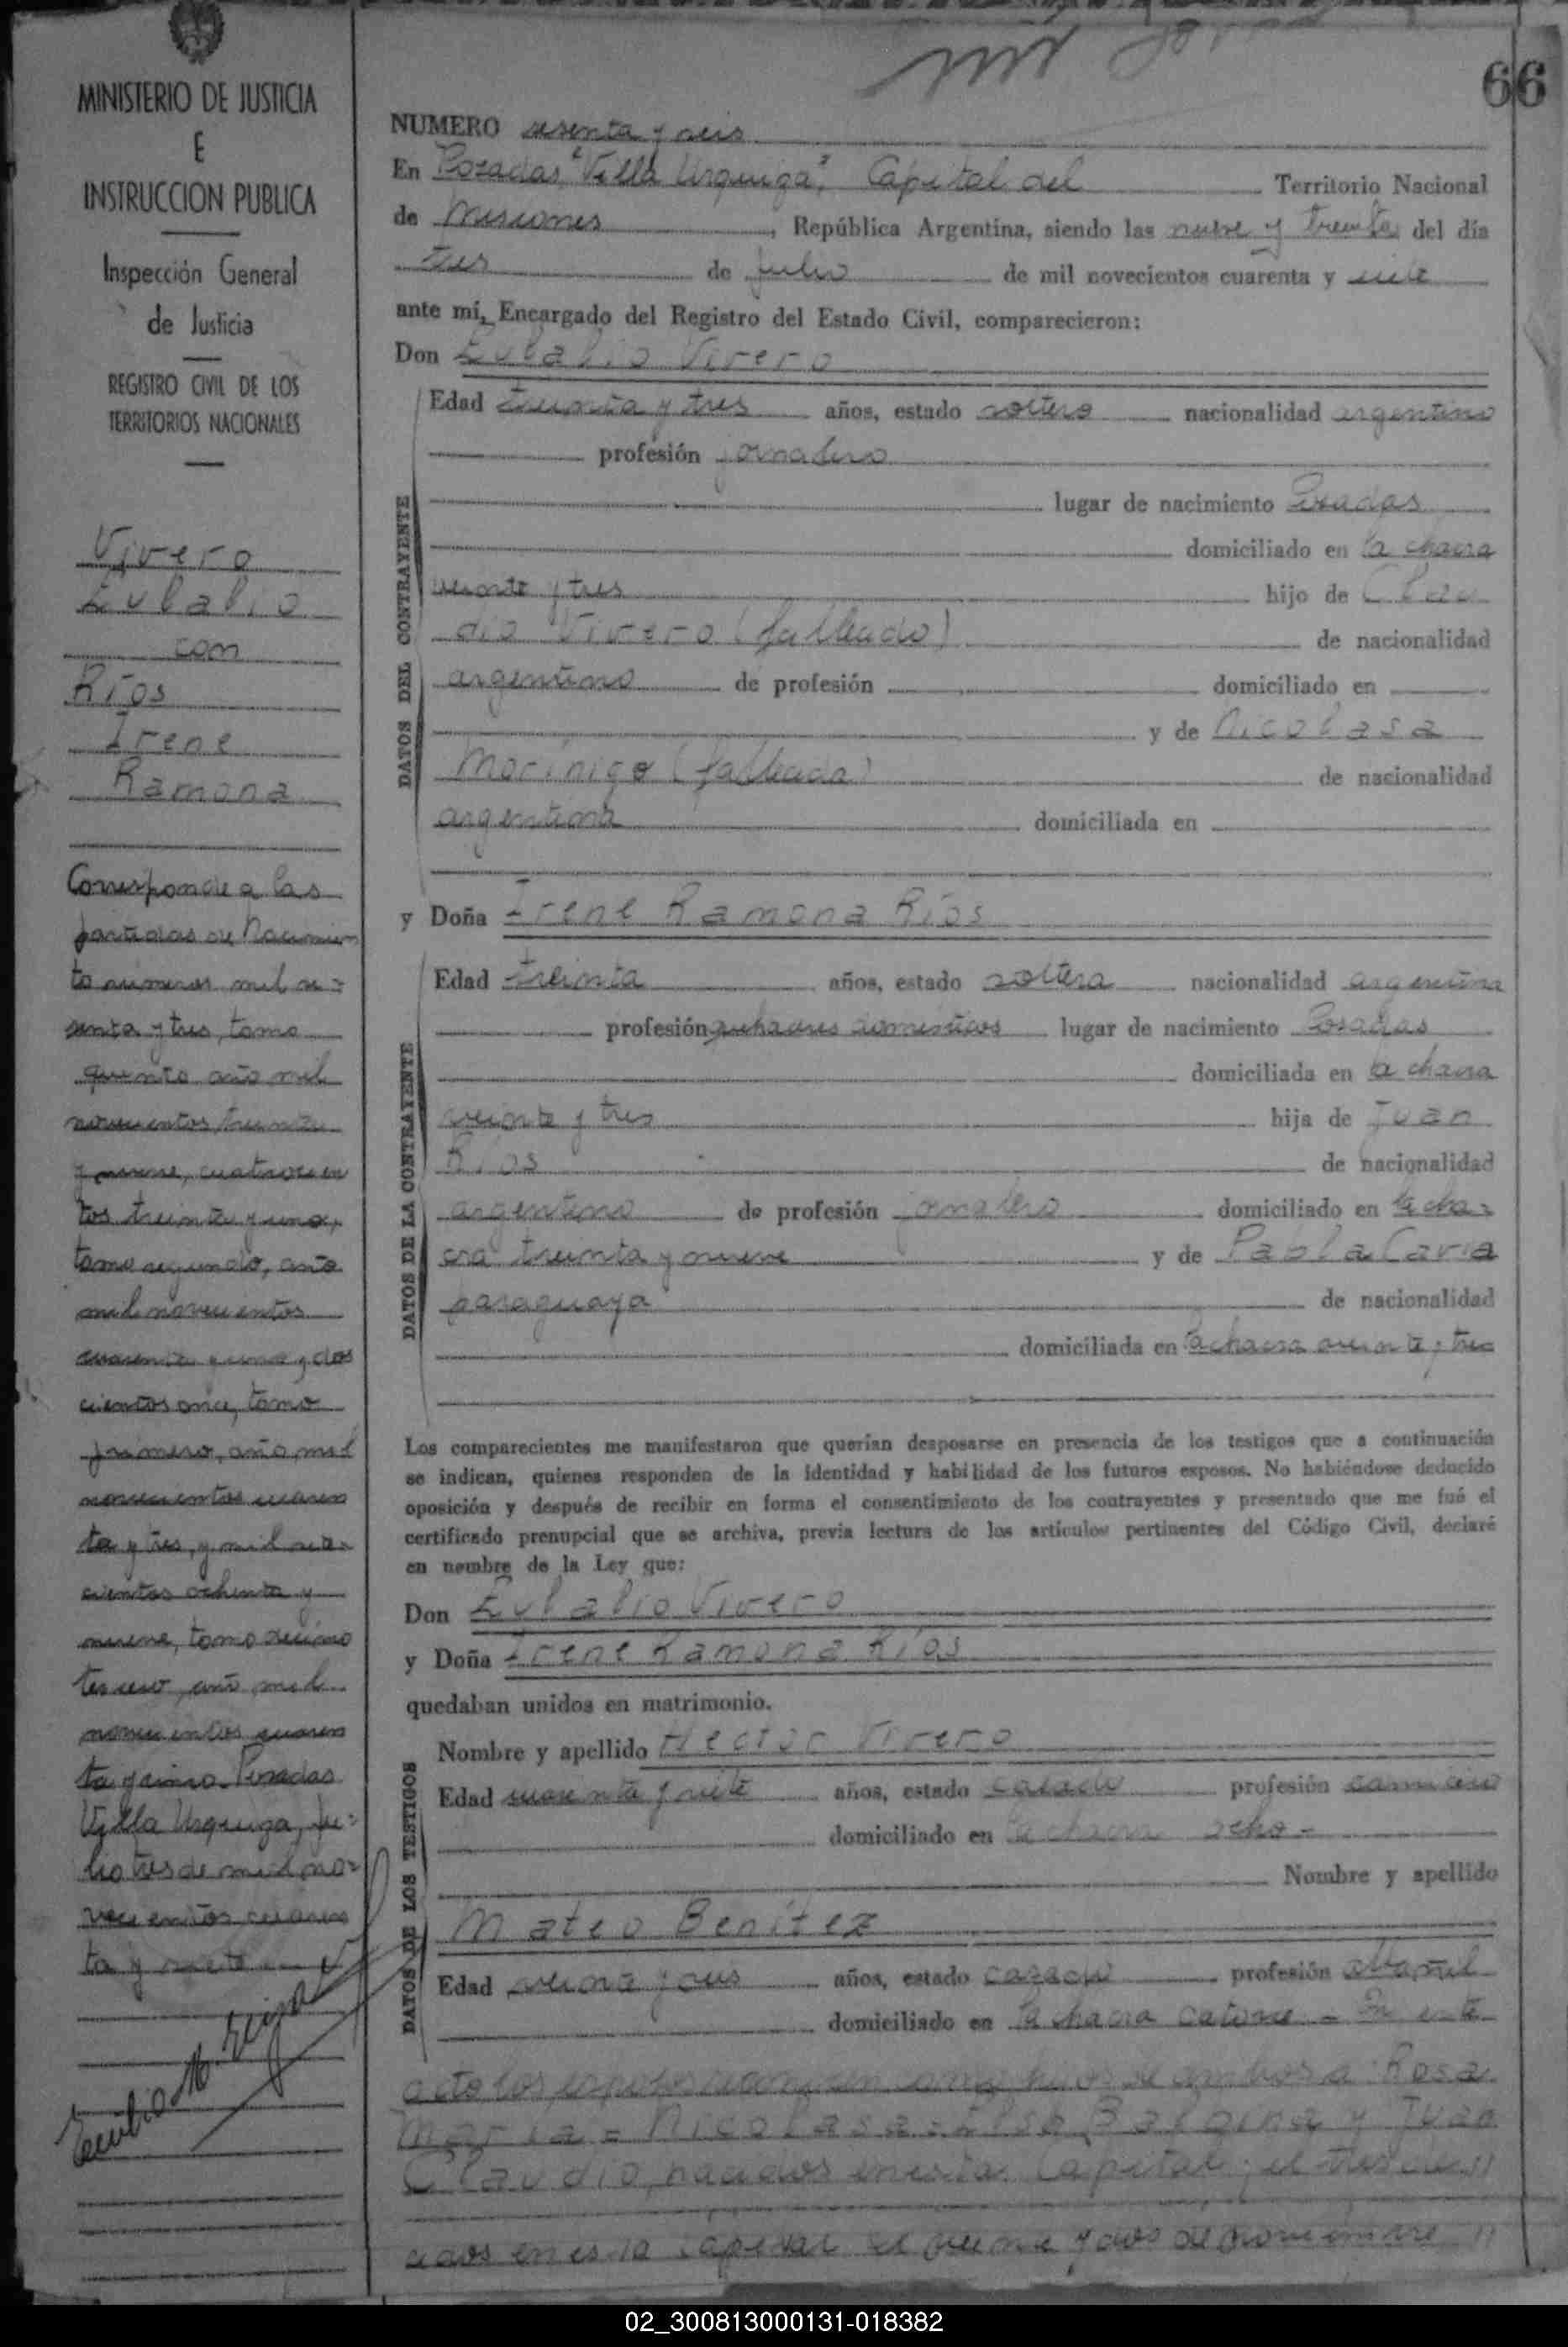 66
MINISTERIO DE JUSTICIA
E
INSTRUCCION PUBLICA
Inspección General
de Justicia
REGISTRO CIVIL DE LOS
TERRITORIOS NACIONALES
Vivero
Eulalio
com
Ríos
Irene
Ramona
Corresponde a las
partidas de Nacimien
to números mil se=
senta y tres, tomo
quinto año mil
novecientos treinta
y nueve, cuatrocien
tos treinta y uno,
tomo segundo, año
mil novecientos
cuarenta y uno y dos
cientos once, tomo
primero, año mil
novecientos cuaren
ta y tres, y mil
cientos ochenta y
nueve, tomo décimo
tercero, año mil
novecientos cuaren
ta y cinco. Posadas
Villa Urquiza, ju=
lio tres de mil no=
vecientos cuaren
ta y siete
NUMERO sesenta y seis
En Posadas "Villa Urquiza", Capital del Territorio Nacional
de Misiones, República Argentina, siendo las nueve y treinta del día
tres de julio de mil novecientos cuarenta y siete
ante mí, Encargado del Registro del Estado Civil, comparecieron:
Don Eulalio Vivero
DATOS DEL CONTRAYENTE
Edad treinta y tres años, estado soltero nacionalidad argentino
profesión jornalero
lugar de nacimiento Posadas
domiciliado en la chacra
veinte y tres hijo de Clau
dio Vivero (fallecido) de nacionalidad
argentino de profesión domiciliado en
y de Nicolasa
Morínigo (fallecida) de nacionalidad
argentina domiciliada en
y Doña Irene Ramona Ríos
DATOS DE LA CONTRAYENTE
Edad treinta años, estado soltera nacionalidad argentina
profesión quehaceres domésticos lugar de nacimiento Posadas
domiciliada en la chacra
veinte y tres hija de Juan
Ríos de nacionalidad
argentino de profesión jornalero domiciliado en la cha=
cra treinta y nueve y de Pabla Cavia
paraguaya de nacionalidad
domiciliada en la chacra veinte y tres
Los comparecientes me manifestaron que querían desposarse en presencia de los testigos que a continuación
se indican, quienes responden de la identidad y habilidad de los futuros esposos. No habiéndose deducido
oposición y después de recibir en forma el consentimiento de los contrayentes y presentado que me fué el
certificado prenupcial que se archiva, previa lectura de los artículos pertinentes del Código Civil, declaré
en nombre de la Ley que:
Don Eulalio Vivero
y Doña Irene Ramona Ríos
quedaban unidos en matrimonio.
DATOS DE LOS TESTIGOS
Nombre y apellido Hector Vivero
Edad cuarenta y siete años, estado casado profesión carnicero
domiciliado en la chacra ocho -
Nombre y apellido
Mateo Benítez
Edad veinte y seis años, estado casado profesión albañil
domiciliado en la chacra catorce - En este
acto los esposos reconocen como hijos de ambos a: Rosa
María = Nicolasa = Elsa Balbina y Juan
Claudio, nacidos en esta Capital, el tres de //
cidos en esta capital el veinte y dos de noviembre //
02_300813000131-018382